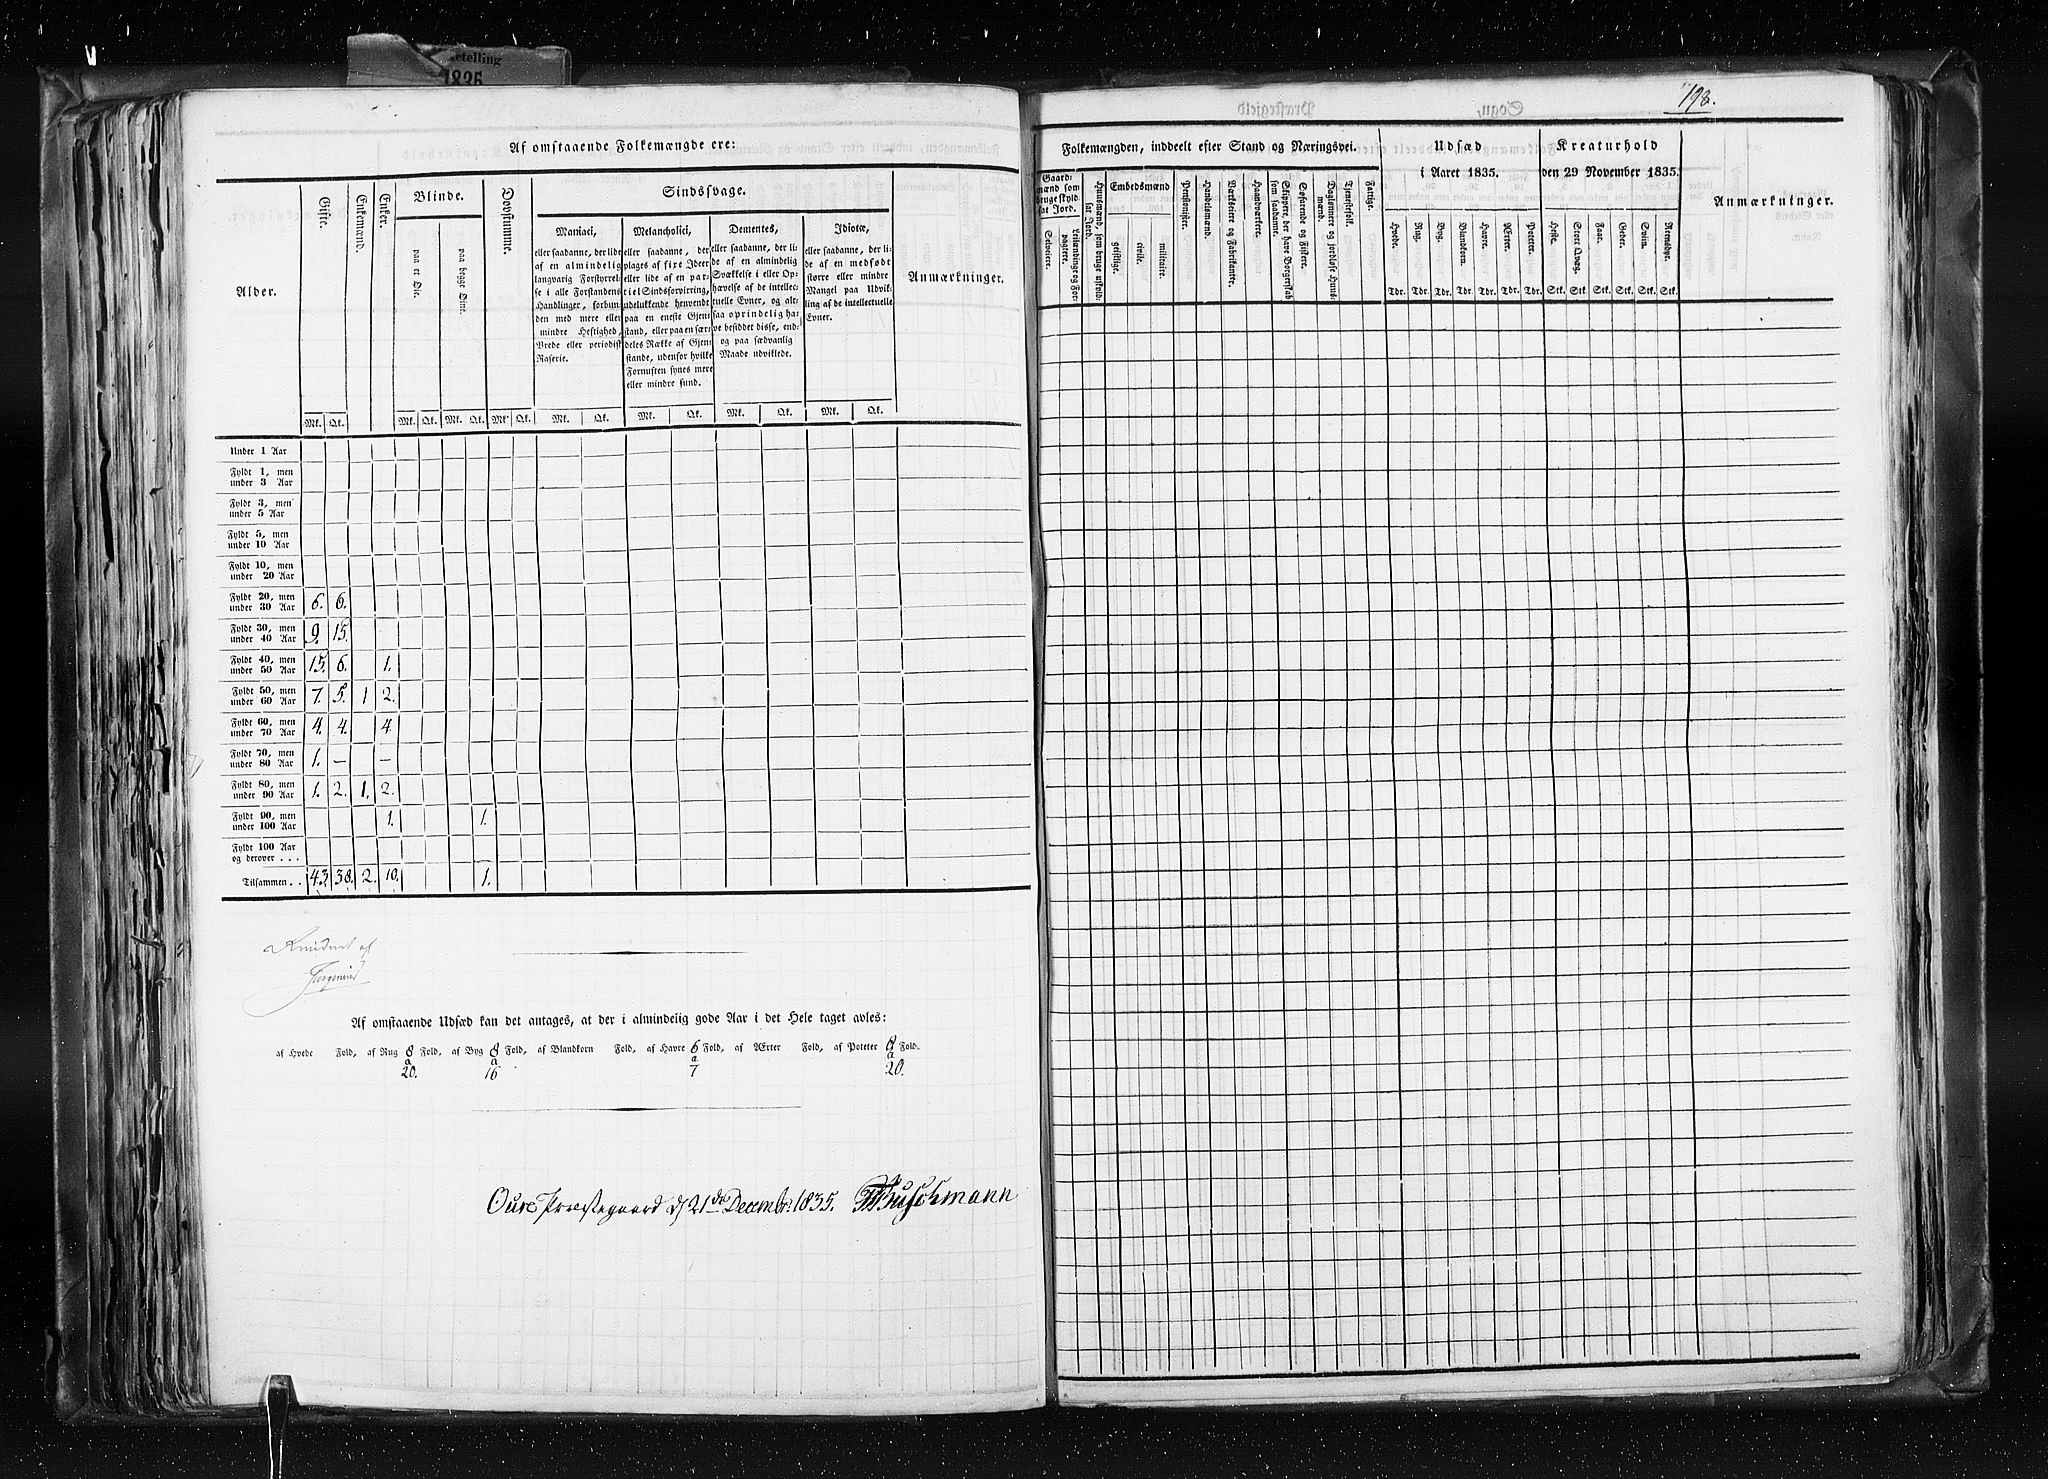 ketelling
1835
Af omstaaende Folkemængde ere:
Alder.
Gifte.
Enkemænd.
Enker.
Blinde.
paa et Øie.
paa begge Øine.
Døvstumme.
Sindssvage.
Maniaci,
eller saadanne, der lide
af en almindelig
langvarig Forstyrrel-
se i alle Forstandens
Handlinger, forbun-
den med mere eller
mindre Heftighed,
Vrede eller periodisk
Raserie.
Melancholici,
eller saadanne, der
plages af fixe Ideer
eller lide af en par-
tiel Sindsforvirring,
udelukkende henvendt
paa en eneste Gjen-
stand, eller paa en sær-
deles Række af Gjen-
stande, udenfor hvilke
Fornuften synes mere
eller mindre sund.
Dementes,
eller saadanne, der li-
de af en almindelig
Svækkelse i eller Op-
hævelse af de intellec-
tuelle Evner, og alt-
saa oprindelig ha-
ve besiddet disse, end-
og paa sædvanlig
Maade udviklede.
Idiotæ,
eller saadanne, der li-
de af en medfødt
større eller mindre
Mangel paa Udvik-
ling af de intellectuelle
Evner.
Anmærkninger.
Mk. Qk. Mk. Qk. Mk. Qk. Mk. Qk. Mk. Qk. Mk. Qk. Mk. Qk. Mk. Qk.
Under 1 Aar
Fyldt 1, men
under 3 Aar
Fyldt 3, men
under 5 Aar
Fyldt 5, men
under 10 Aar
Fyldt 10, men
under 20 Aar
Fyldt 20, men
under 30 Aar 6. 6.
Fyldt 30, men
under 40 Aar 9. 15.
Fyldt 40, men
under 50 Aar 15. 6. 1.
Fyldt 50, men
under 60 Aar 7. 5. 1 2.
Fyldt 60, men
under 70 Aar 4. 4. 4
Fyldt 70, men
under 80 Aar 1. – –
Fyldt 80, men
under 90 Aar 1. 2. 1. 2.
Fyldt 90, men
under 100 Aar 1. 1.
Fyldt 100 Aar
og derover . . .
Tilsammen . . 43. 38. 2. 10. 1.
Af omstaaende Udsæd kan det antages, at der i almindelig gode Aar i det Hele taget avles:
af Hvede Fold, af Rug 8 Fold, af Byg 8 Fold, af Blandkorn Fold, af Havre 6 Fold, af Ærter Fold, af Poteter 8 Fold.
a a a a
20. 16 7 20.
Oure Præstegaard d 21de Decembr. 1835. Buschmann
198.
Folkemængden, inddeelt efter Stand og Næringsvei.
Gaard-
mænd som
bruge skyld-
sat Jord.
Selveiere.
Leilændinge og For-
pagtere.
Huusmænd, som bruge utskyld-
sat Jord.
Embedsmænd
geistlige.
civile.
militaire.
Pensionister.
Handelsmænd.
Værkseiere
og Fabrikanter.
Haandværkere.
Skippere, der have Borgerskab
som saadanne.
Søfarende og Fiskere.
Daglønnere og jordløse Huus-
mænd.
Tjenestefolk.
Fattige.
Udsæd
i Aaret 1835.
Hvede.
Rug.
Byg.
Blandkorn.
Havre.
Ærter.
Poteter.
Tdr. Tdr. Tdr. Tdr. Tdr. Tdr. Tdr.
Kreaturhold
den 29 November 1835.
Heste.
Stort Qvæg.
Faar.
Geder.
Sviin.
Rensdyr.
Stk. Stk. Stk. Stk. Stk. Stk.
Anmærkninger.